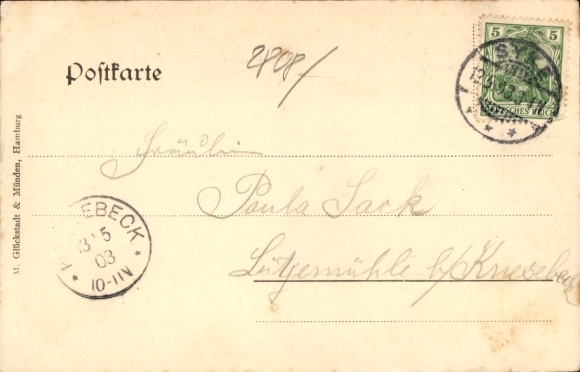 Postkarte
5 5
DEUTSCHES REICH
Fräulein
Paula Sack
Lütjemühle b/Knesebeck
EBECK
5
03
10-11N
M. Glückstadt & Münden, Hamburg